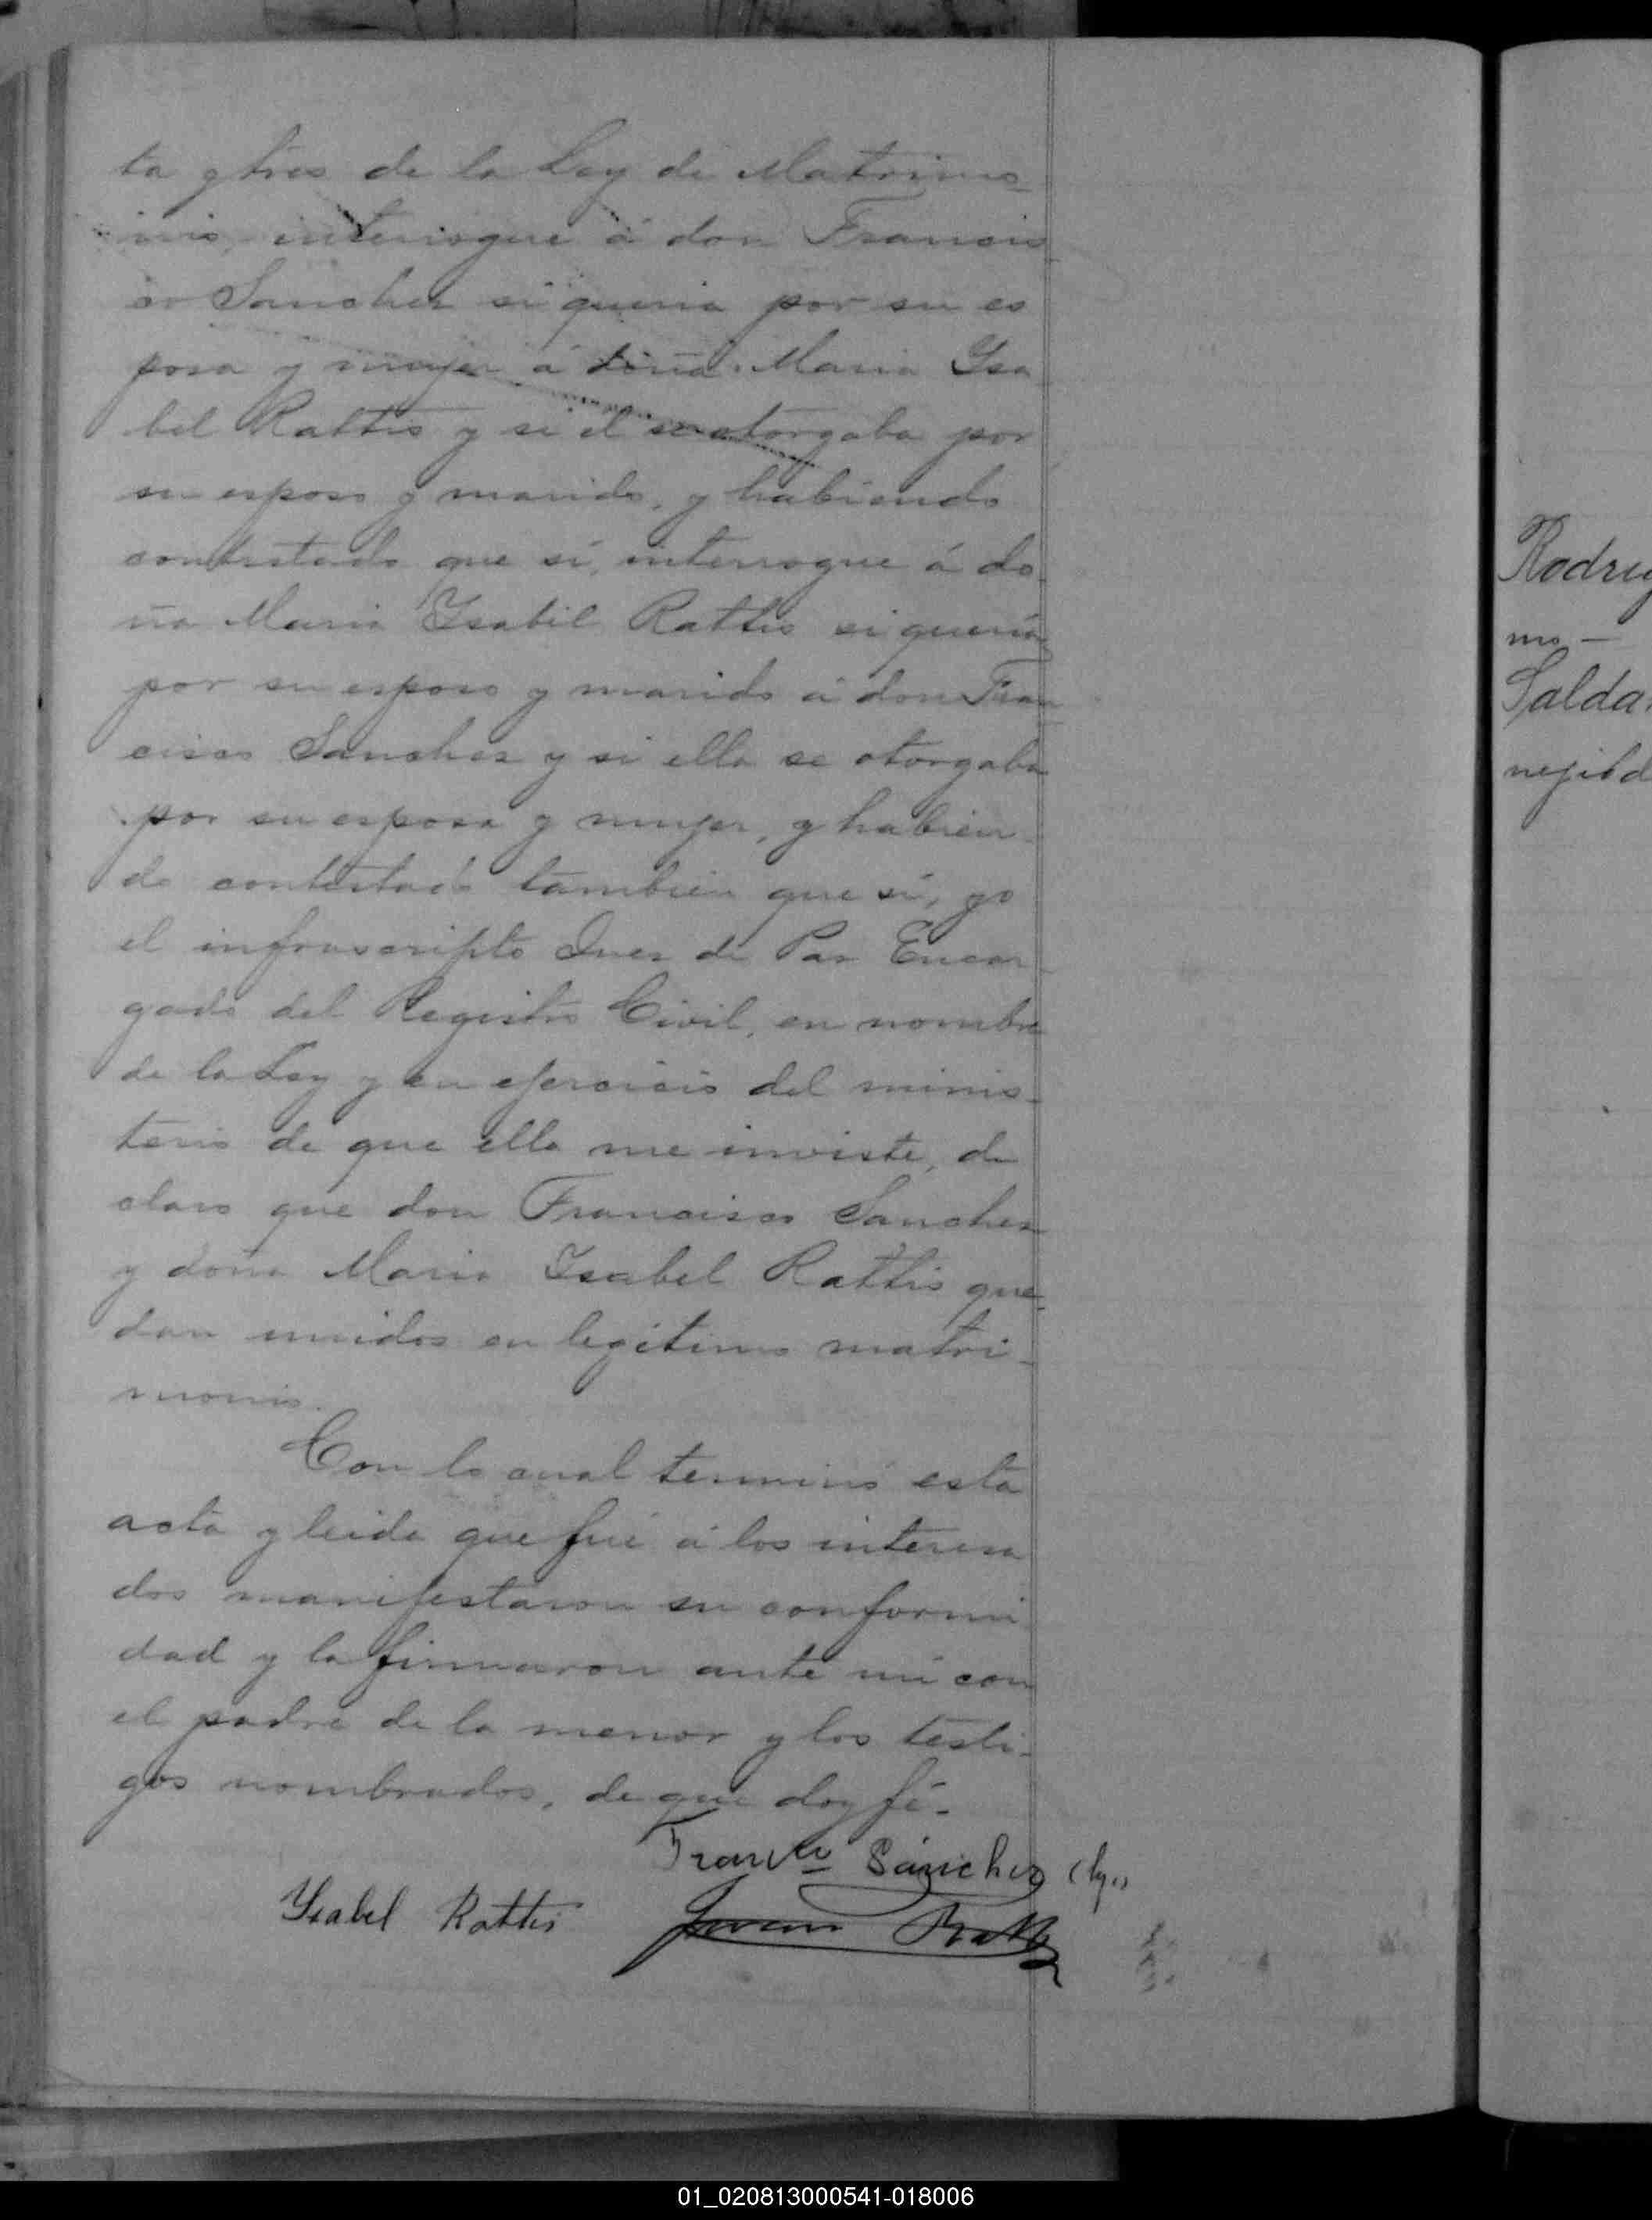 ta y tres de la Ley de Matrimo-
nio, interrogué á don Francis
co Sanchez si queria por su es
posa y mujer á doña Maria Ysa
bel Rattis y si él se otorgaba por
su esposo y marido, y habiendo
contestado que sí, interrogué á do-
ña Maria Ysabel Rattis si queria
por su esposo y marido á don Fran
cisco Sanchez y si ella se otorgaba
por su esposa y mujer, y habien-
do contestado tambien que sí, yo
el infrascripto Juez de Paz Encar-
gado del Registro Civil, en nombre
de la Ley y en ejercicio del minis-
terio de que ella me inviste, de
claro que don Francisco Sanchez
y doña Maria Ysabel Rattis que-
dan unidos en legítimo matri-
monio.
Con lo cual terminó esta
acta y leida que fué á los interesa
dos manifestaron su conformi
dad y la firmaron ante mí con
el padre de la menor y los testi-
gos nombrados, de que doy fé.
Franco Sánchez (hijo)
Ysabel Rattis Juan Rattis
Rodrig
mo —
Salda
nejild
01_020813000541-018006